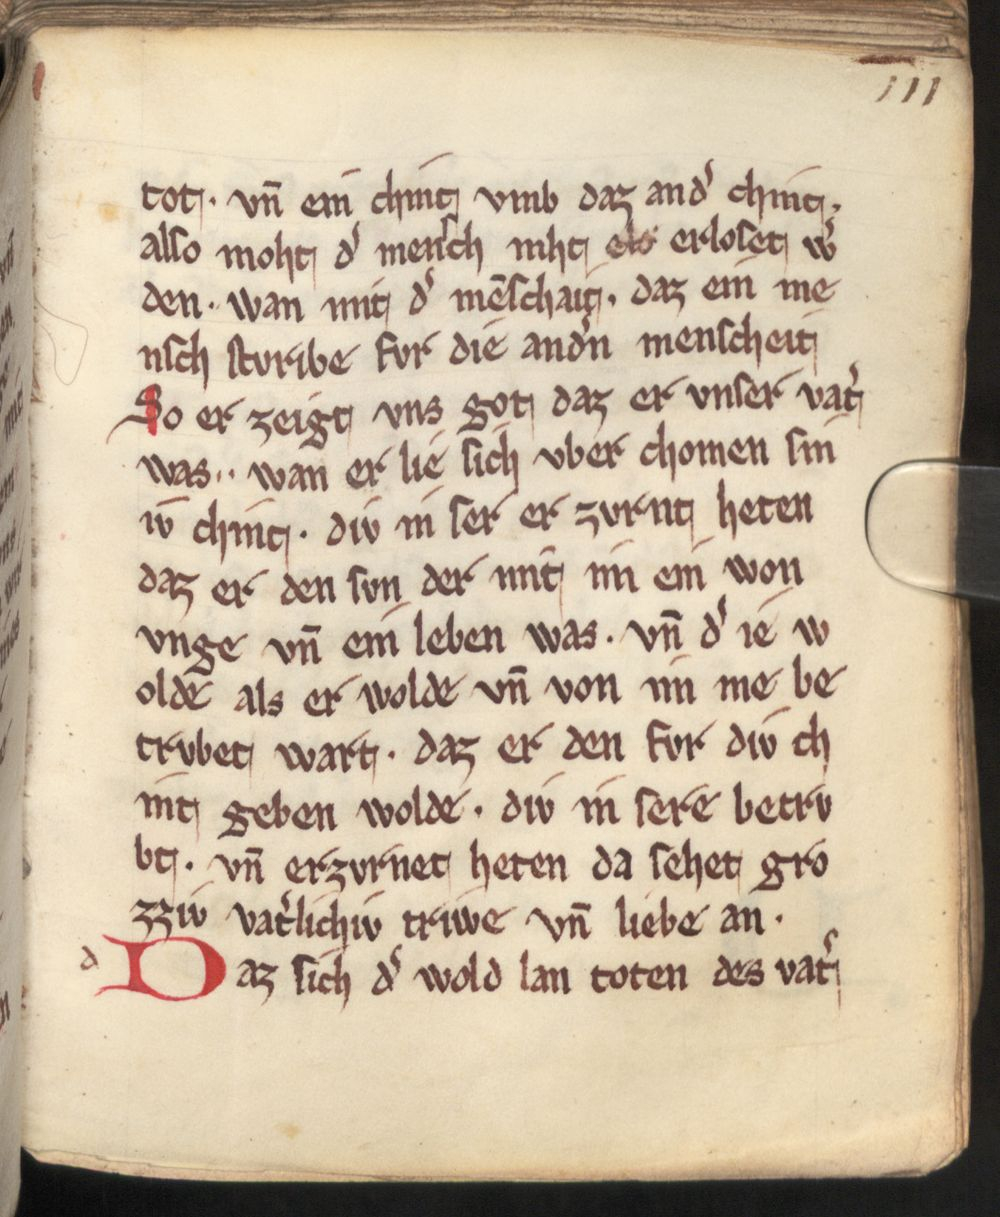 111
tot. vn̄ ein chint vmb daz and᾽ chint.
also moht d᾽ mensch niht els erloset w᾽
den. wan mit d᾽ mēschait. daz ein me
nsch sturibe fur die and᾽n menscheit
So er zeigt vns got daz er vnser vat᾽
was.. wan er lie sich vber chomen sin
iv chint. div in ser er zvrnt heten
daz er den svn der mit im ein won
vnge vn̄ ein leben was. vn̄ d᾽ ie w
olde als er wolde vn̄ von im me be
trvbet wart. daz er den fvr div ch
int geben wolde. div in sere betrv
bt. vn̄ erzvrnet heten da sehet gro
zziv vat᾽lichiv triwe vn̄ liebe an.
d Daz sich d᾽ wold lan toten des vat᾽